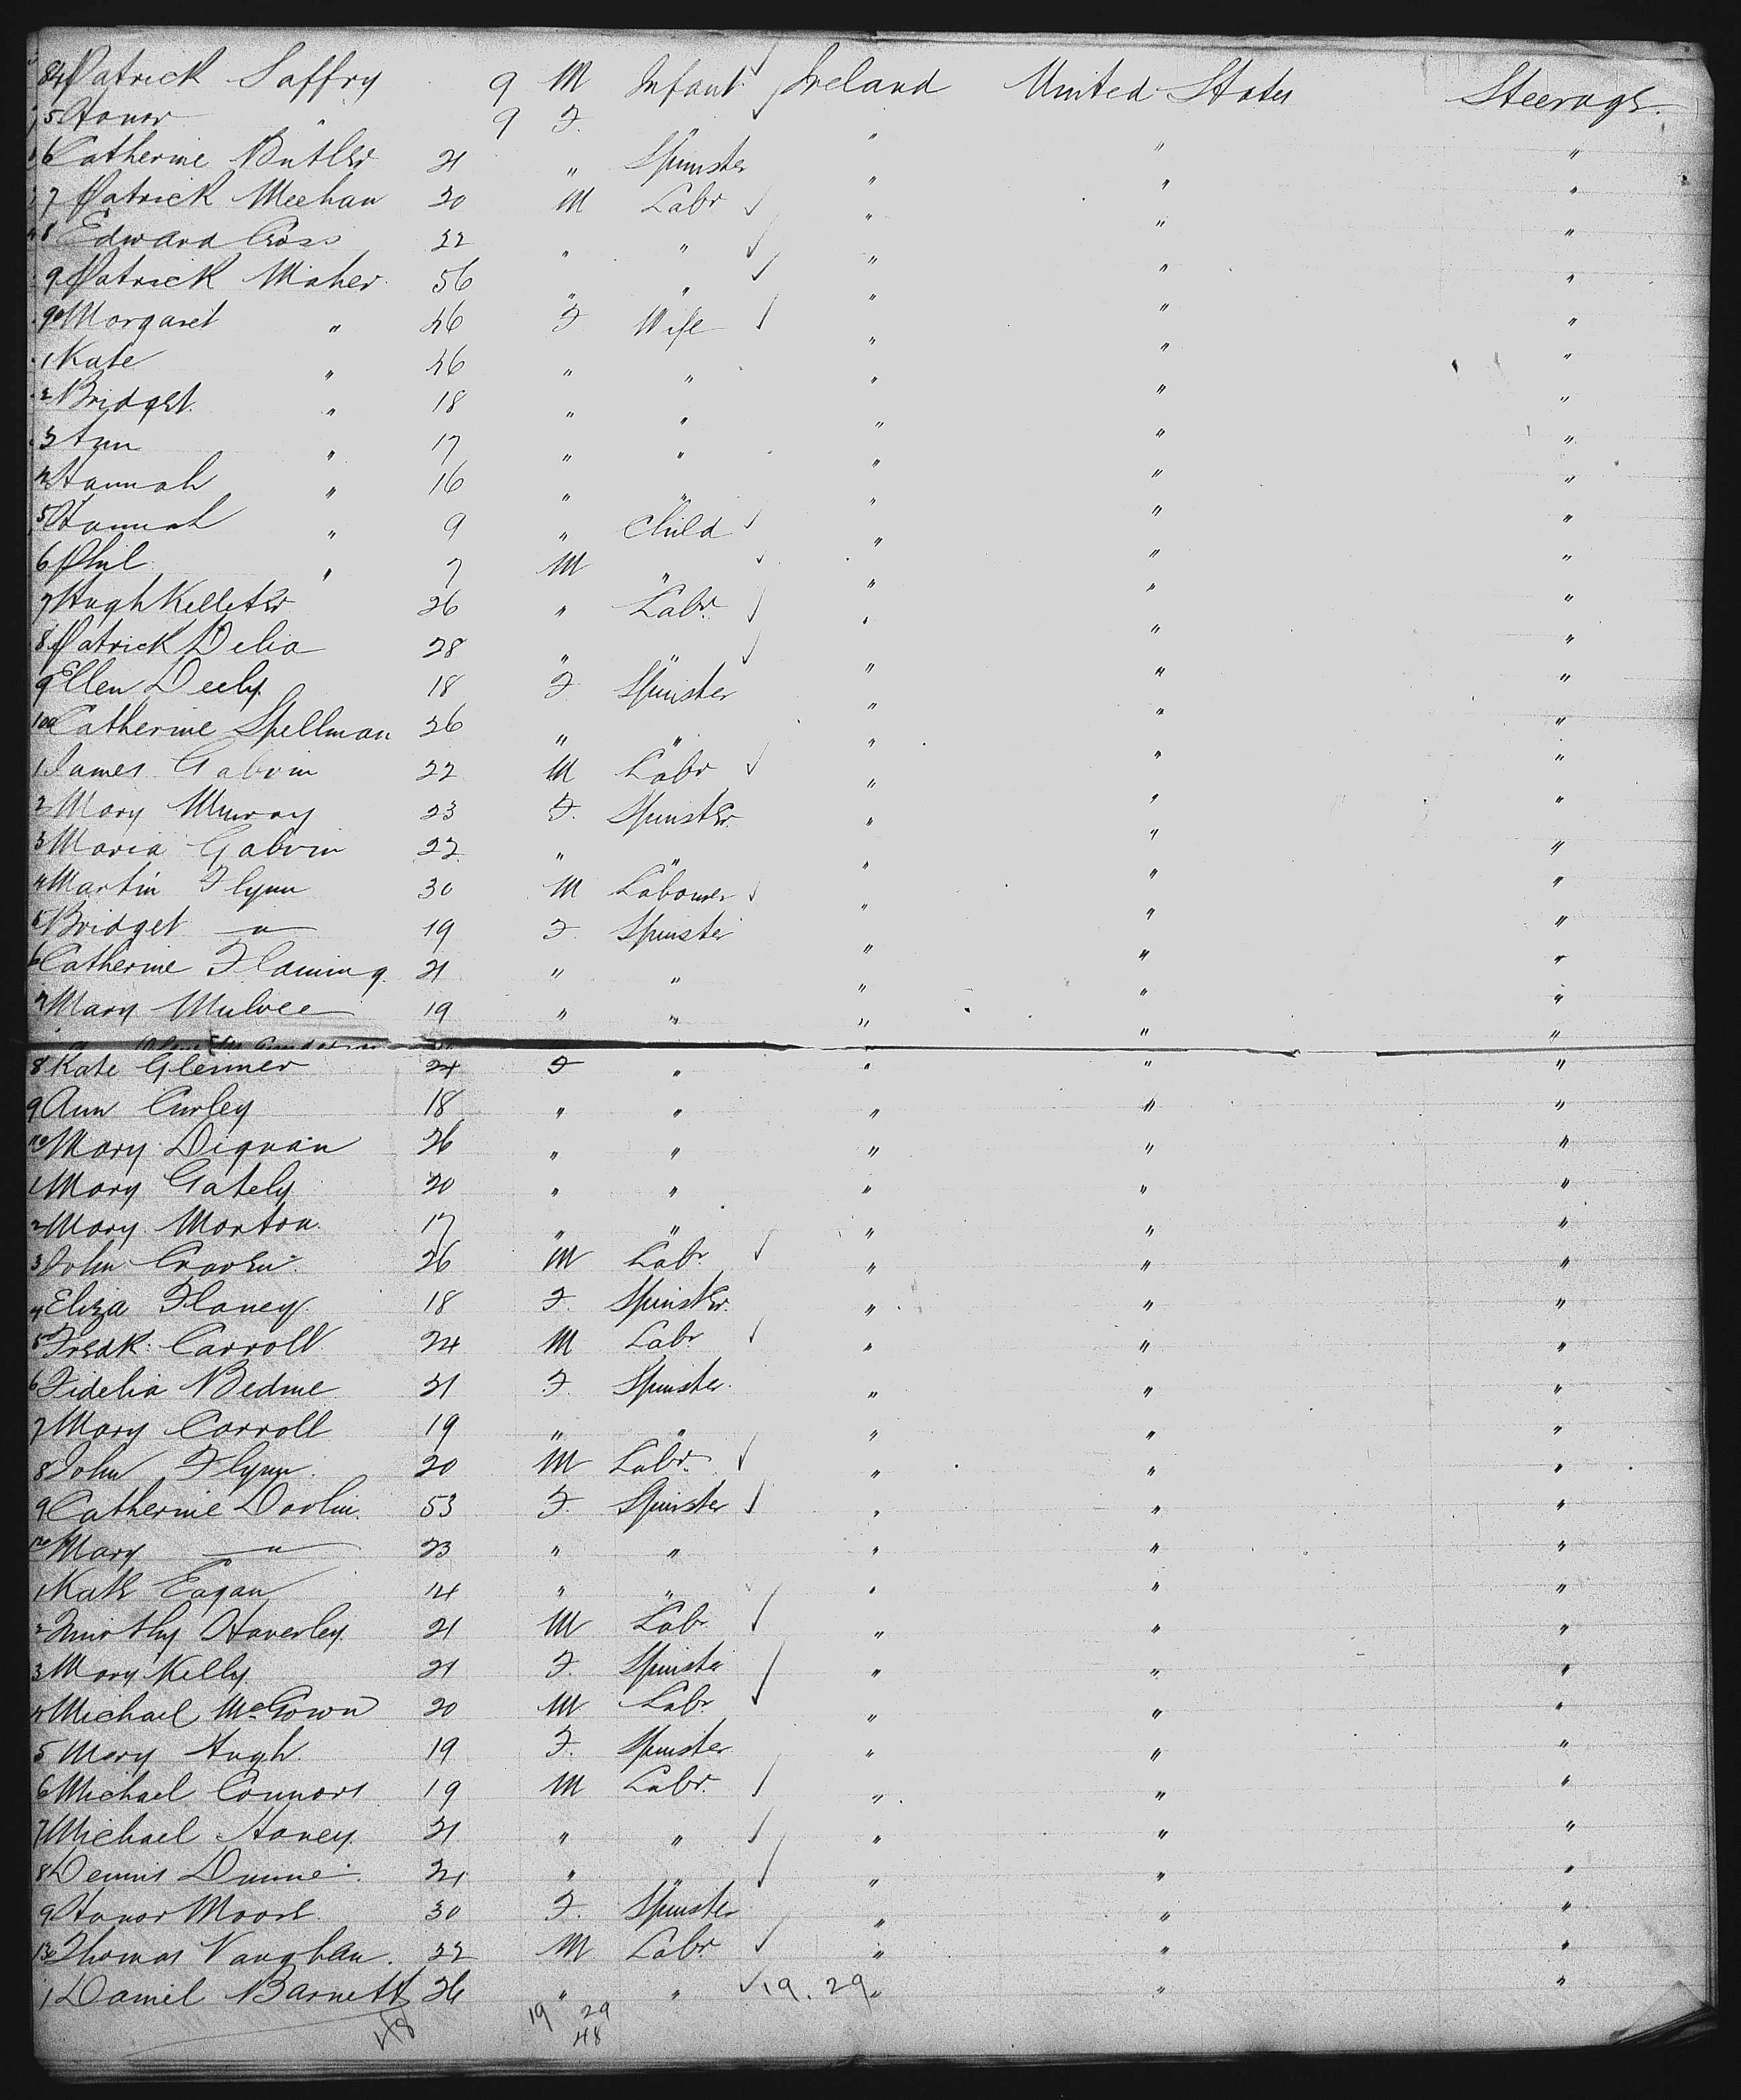 84 Patrick Saffry 9 M Infant Ireland United States Steerage.
5 Honor " 9 F. " " " "
6 Catherine Butler 21 " Spinster " " "
7 Patrick Meehan 20 M Labr " " "
8 Edward Cross 22 " " " " "
9 Patrick Maher 56 " " " " "
90 Margaret " 46 F Wife " " "
1 Kate " 26 " " " " "
2 Bridget " 18 " " " " "
3 Ann " 17 " " " " "
4 Hannah " 16 " " " " "
5 Hannah " 9 " Child " " "
6 Phil " 7 M " " " "
7 Hugh Kelleter 26 " Labr. " " "
8 Patrick Delia 28 " " " " "
9 Ellen Deely 18 F Spinster " " "
100 Catherine Spellman 26 " " " " "
1 James Galvin 22 M Labr " " "
2 Mary Murray 23 F. Spinster " " "
3 Maria Galvin 22 " " " " "
4 Martin Flynn 30 M Labourer " " "
5 Bridget " 19 F. Spinster " " "
6 Catherine Flaming 21 " " " " "
7 Mary Mulvee 19 " " " " "
8 Kate Glenner 24 F " " " "
9 Ann Curley 18 " " " " "
110 Mary Dignan 26 " " " " "
1 Mary Gately 20 " " " " "
2 Mary Morton 17 " " " " "
3 John Craven 26 M Labr " " "
4 Eliza Flaney 18 F. Spinster. " " "
5 Fredk. Carroll 24 M Labr " " "
6 Fidelia Bedme 21 F. Spinster. " " "
7 Mary Carroll 19 " " " " "
8 John Flynn 20 M Labr. " " "
9 Catherine Dovlin 53 F. Spinster " " "
120 Mary " 23 " " " " "
1 Kate Eagan 14 " " " " "
2 Timothy Haverley 21 M Labr " " "
3 Mary Kelly 21 F. Spinster " " "
4 Michael McGown 20 M Labr " " "
5 Mary Hugh 19 F. Spinster " " "
6 Michael Connors 19 M Labr. " " "
7 Michael Haney 21 " " " " "
8 Dennis Dunne 21 " " " " "
9 Honor Moore 30 F. Spinster " " "
130 Thomas Vaughan 22 M Labr. " " "
1 Daniel Barnett 26 " " 19. 29 " " "
48 19 29
48